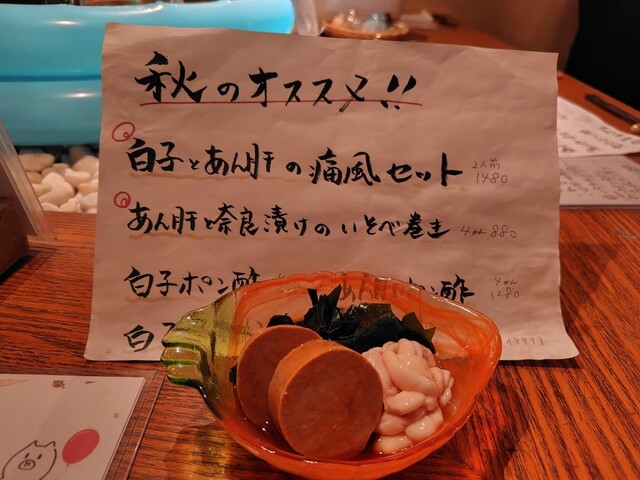 秋のオススメ!!
白子とあん肝の痛風セット 2人前 1480
あん肝と奈良漬けのいそべ巻き 4かん 880
白子ポン酢 あん肝ポン酢 1280
白子